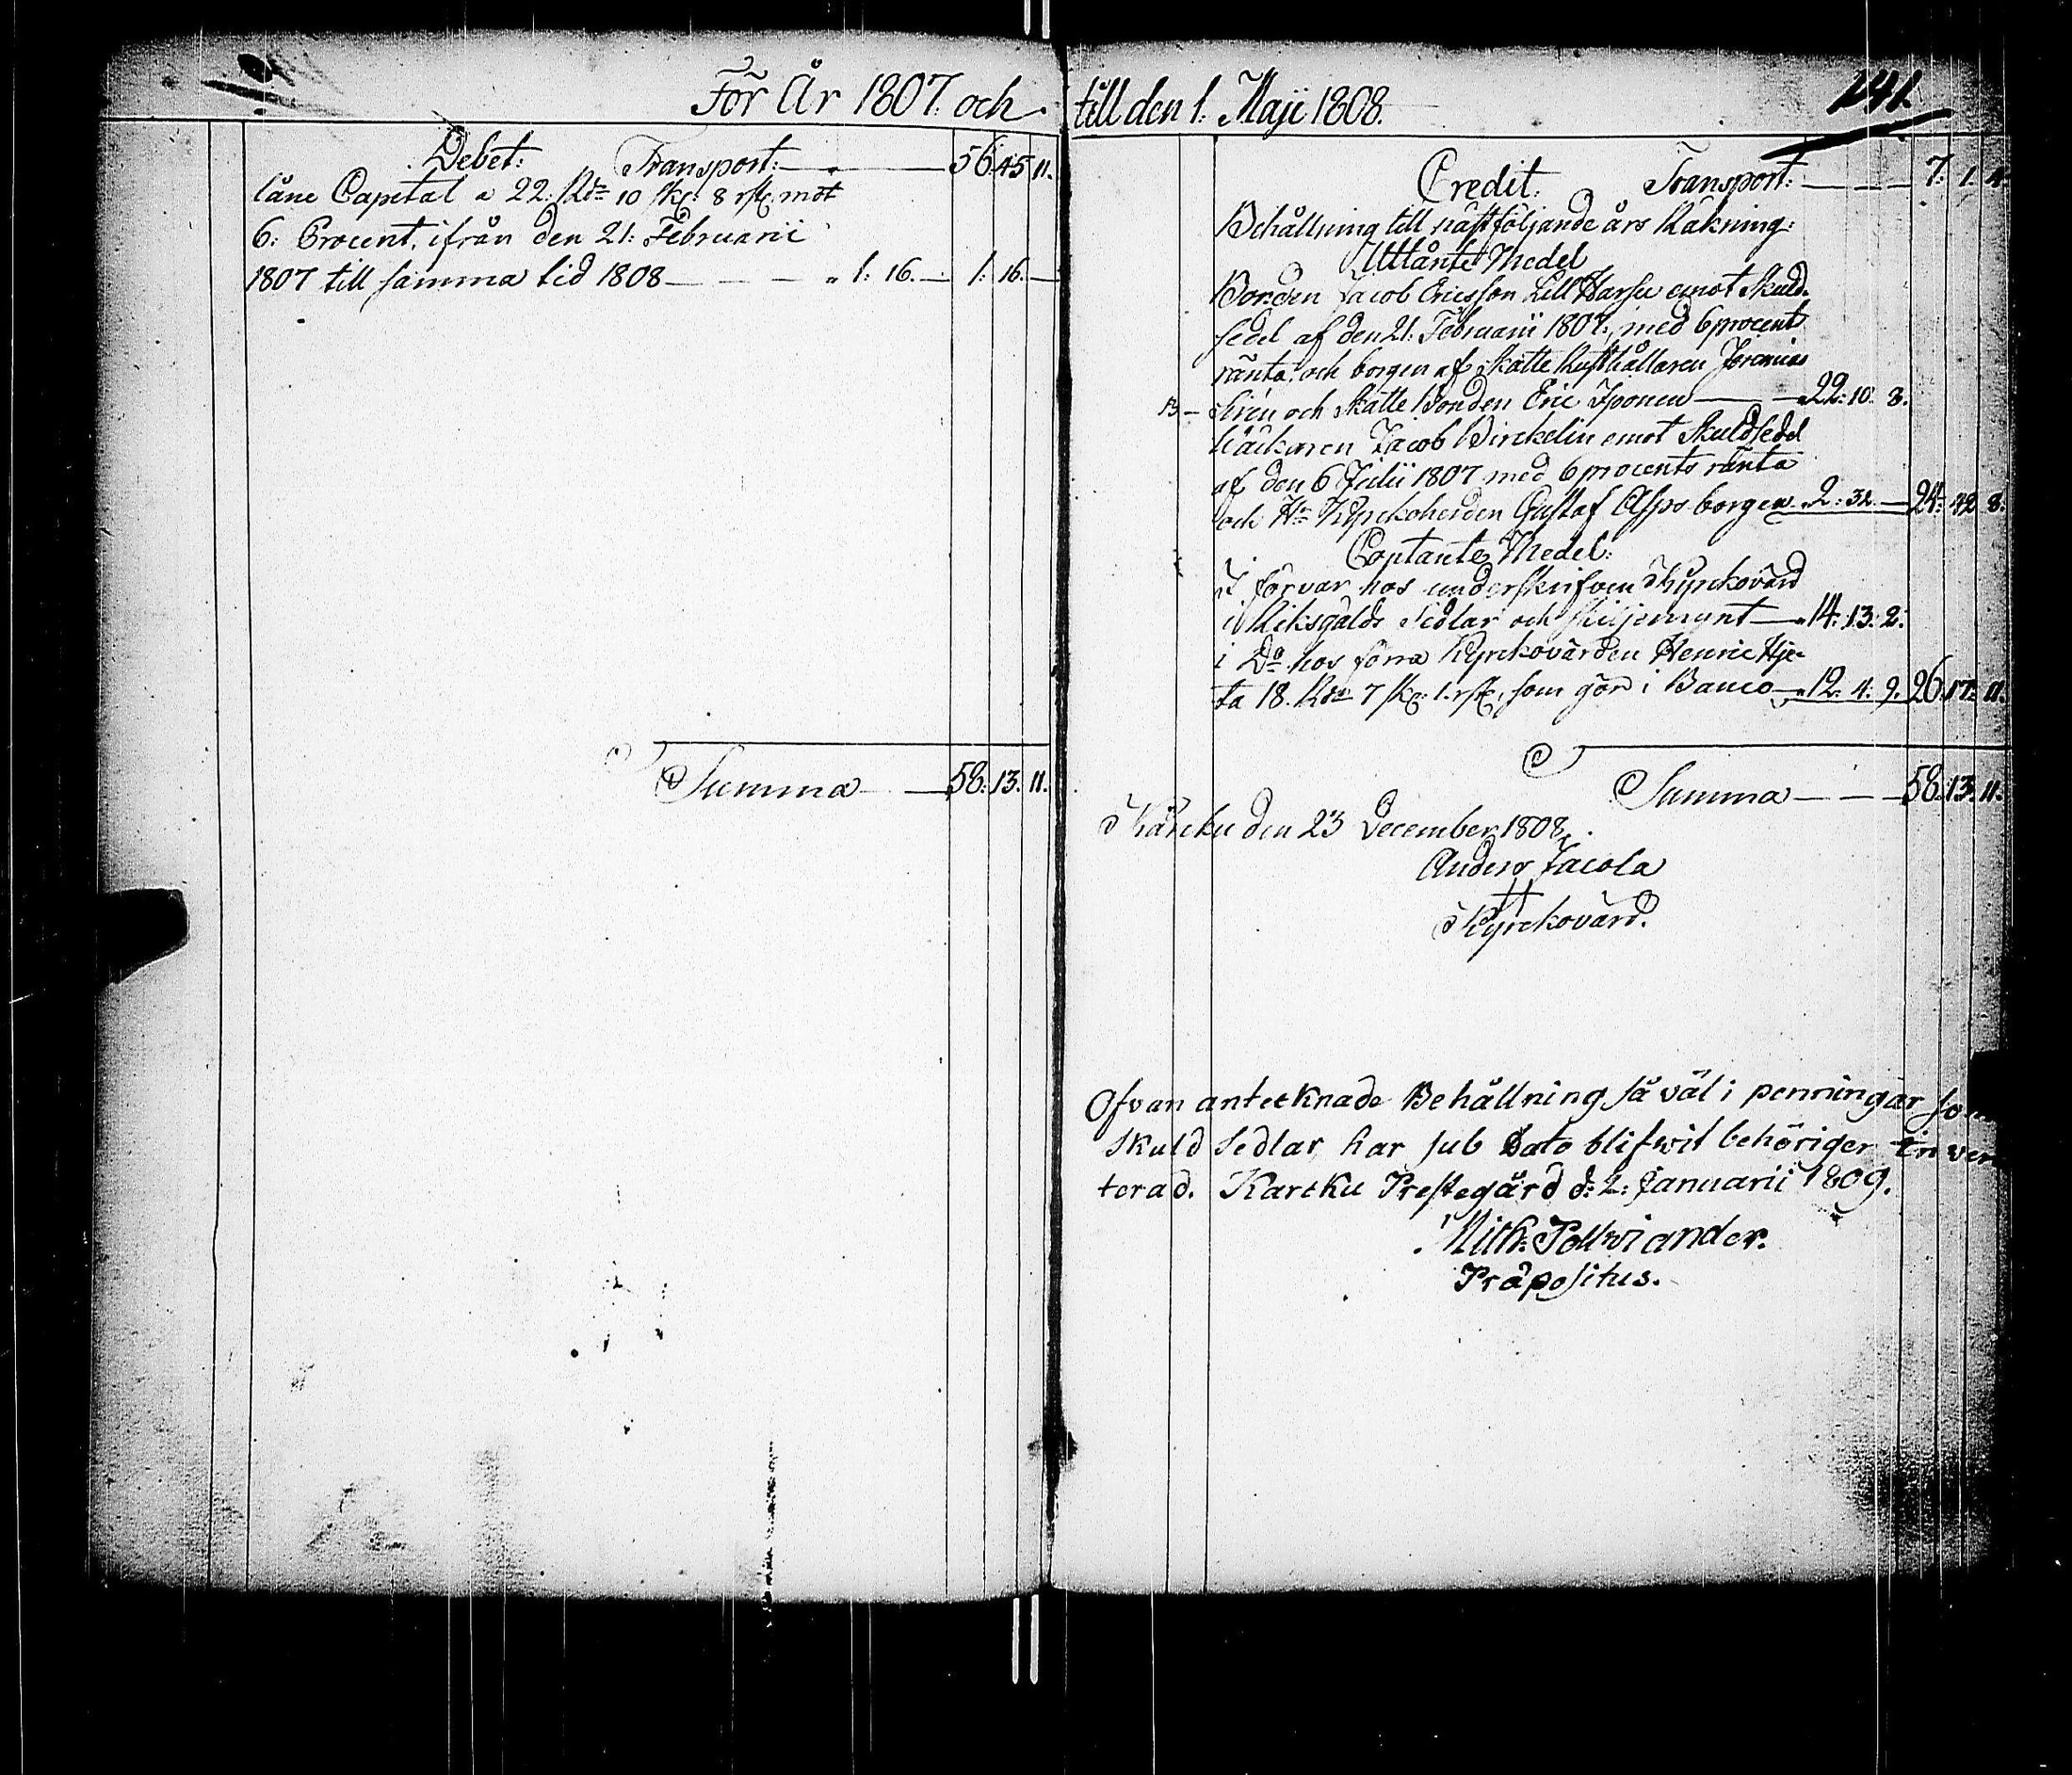 För År 1807. och
Debet: Transport: — 56. 45. 11.
låne Capital a 22: Rdr 10 sk: 8 rst. mot
6: Procent, ifrån den 21: Februarii
1807 till samma tid 1808 — — — " 1: 16. — 1: 16. —
Summa — 58: 13. 11.
till den 1: Maji 1808.
141.
Credit: Transport: — — — 7: 1. 4.
Behållning till nästföljande års Räkning:
Utlånte Medel
Bonden Jacob Ericsson Lill Harsu emot Skuld-
sedel af den 21: Februarii 1807, med 6 procent
ränta och borgen af Skatte Rusthållaren Jeremias
B — Sirén och Skatte Bonden Eric Iponen — — 22: 10. 8.
Jacob Winckelin emot Skuldsedel
af den 6 Julii 1807 med 6 procents ränta
och Hr Kyrckoherden Gustaf Asps borgen. 2: 32. — 24: 42. 8.
Contante Medel:
I förvar hos underskrifven Kyrckovärd
i Riksgälds Sedlar och skiljemynt — " 14. 13. 2.
i Do hos förra Kyrckovärden Henric Hje-
ta 18. Rdr 7 sk: 1. rst, som gör i Banco — " 12. 4. 9. 26. 17. 11.
Summa — — — 58. 13. 11.
Karcku den 23 December 1808.
Anders Jacola
Kyrckovärd.
Ofvan antecknade Behållning så väl i penningar som
skuld sedlar, har sub Dato blifwit behörigen Inven
terad. Karcku Prestegård d: 2: Januarii 1809.
Mich: Polviander.
Präpositus.